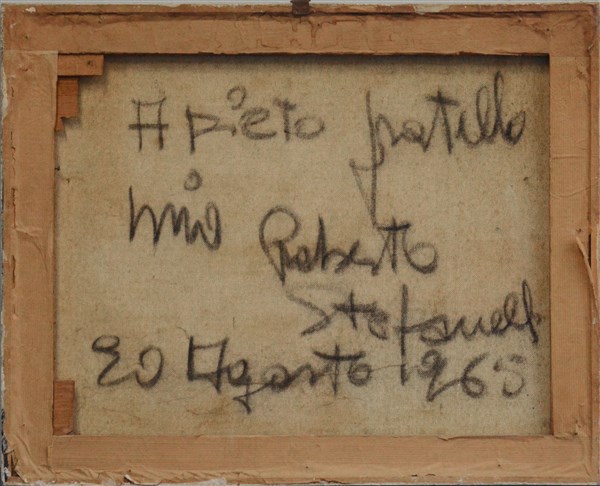 A Pieto fratello
mio Roberto
Stefanelli
20 Agosto 1965